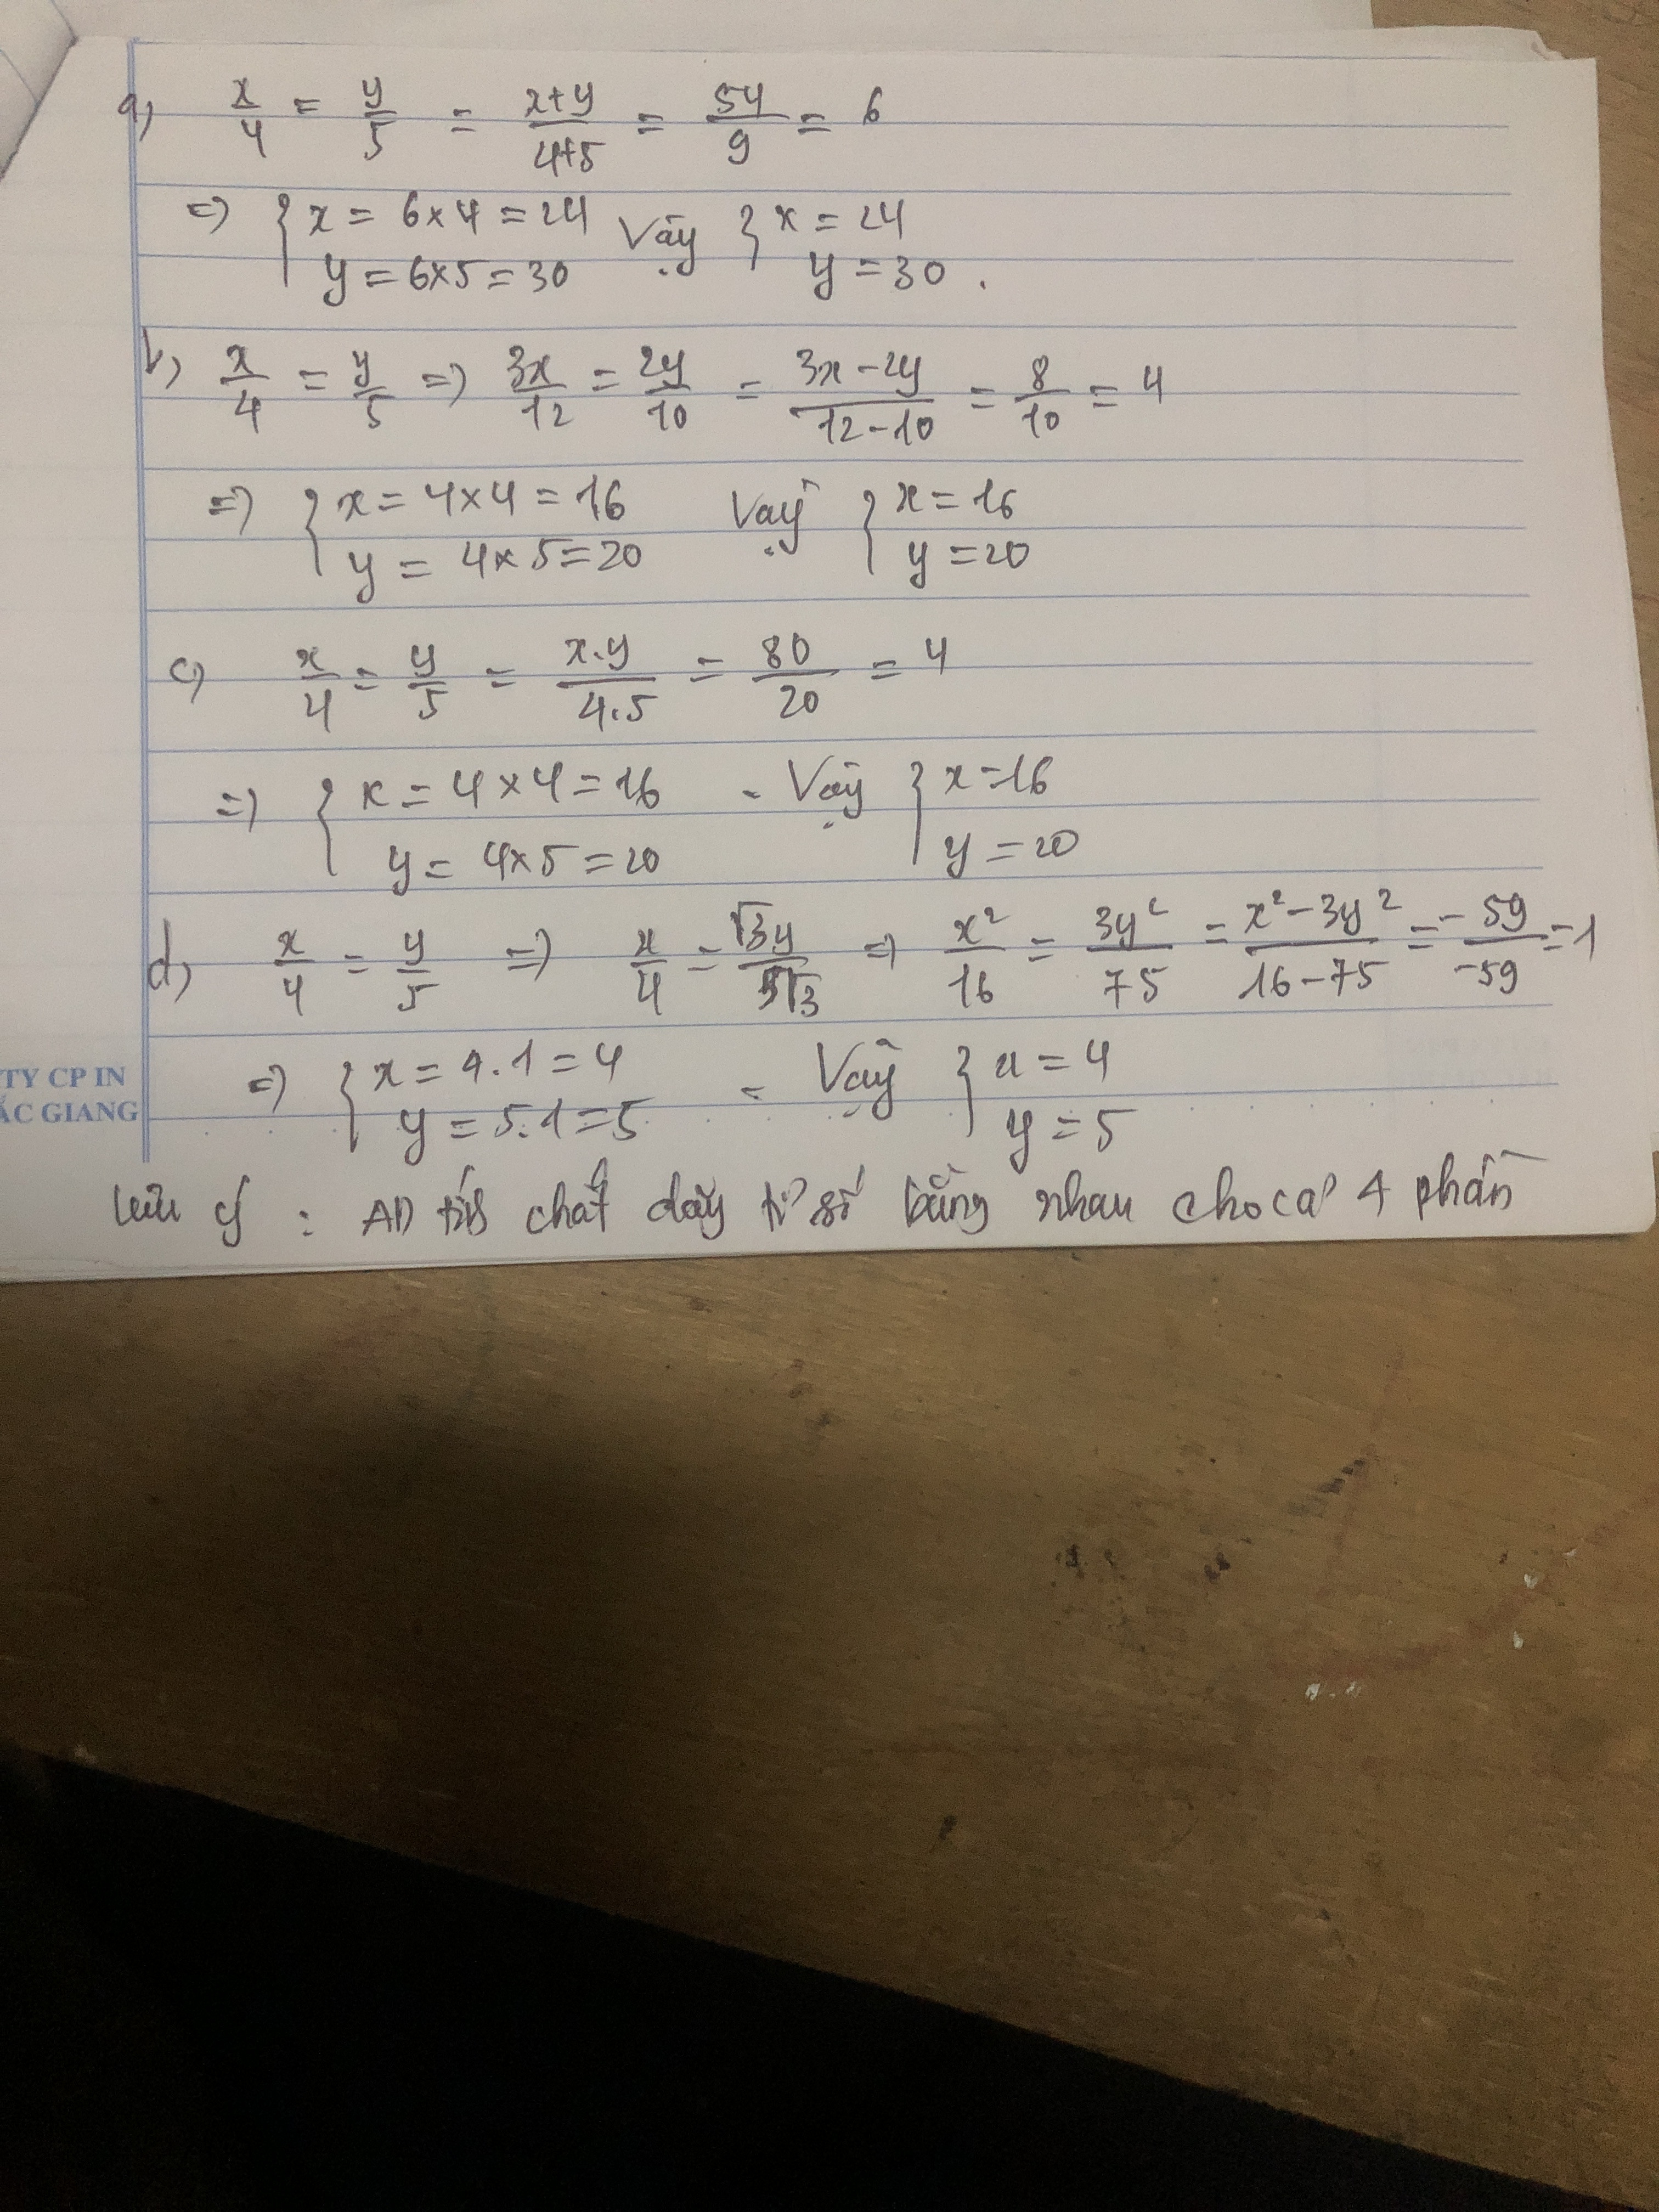 a) x/4 = y/5 = x+y/4+5 = 54/9 = 6
=> { x = 6×4 = 24 Vậy { x = 24
y = 6×5 = 30 y = 30 .
b) x/4 = y/5 => 3x/12 = 2y/10 = 3x-2y/12-10 = 8/10 = 4
=> { x = 4×4 = 16 Vậy { x = 16
y = 4×5 = 20 y = 20
c) x/4 = y/5 = x.y/4.5 = 80/20 = 4
=> { x = 4×4 = 16 - Vậy { x = 16
y = 4×5 = 20 y = 20
d) x/4 = y/5 => x/4 = √3y/5√3 => x²/16 = 3y²/75 = x²-3y²/16-75 = -59/-59 = 1
=> { x = 4.1 = 4 - Vậy { x = 4
y = 5.1 = 5 y = 5
TY CP IN
ẮC GIANG
Lưu ý : AD t/c chất dãy tỉ số bằng nhau cho cả 4 phần